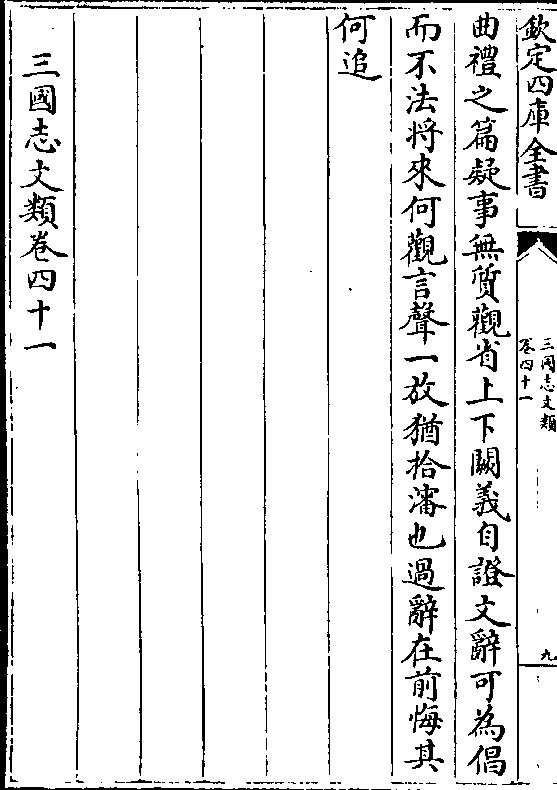 欽定四庫全書
三國志文類
卷四十一
九
曲禮之篇疑事無質觀省上下闕義自證文辭可為倡
而不法將來何觀言聲一放猶拾瀋也過辭在前悔其
何追
三國志文類卷四十一